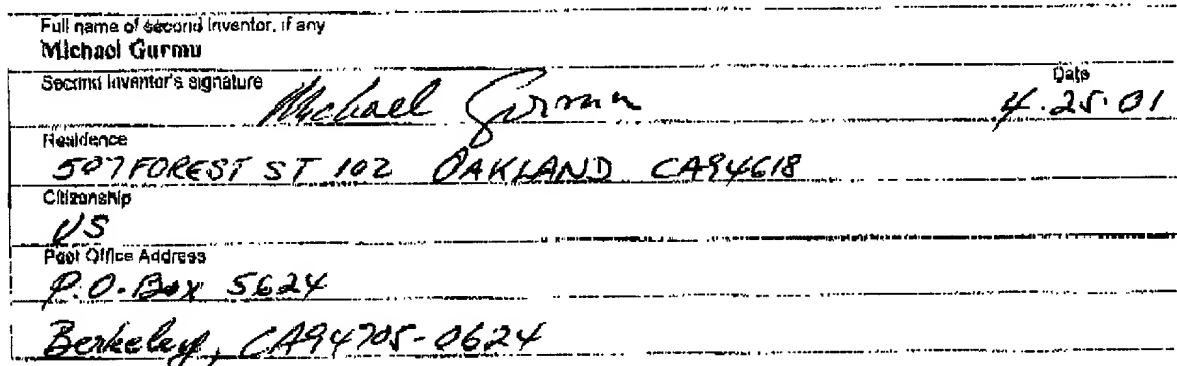 Full name of second inventor, if any
Michael Gurmu
Second inventor's signature Michael Gurmu Date
4.25.01
Residence
507 FOREST ST 102 OAKLAND CA94618
Citizenship
US
Post Office Address
P.O. Box 5624
Berkeley, CA94705-0624